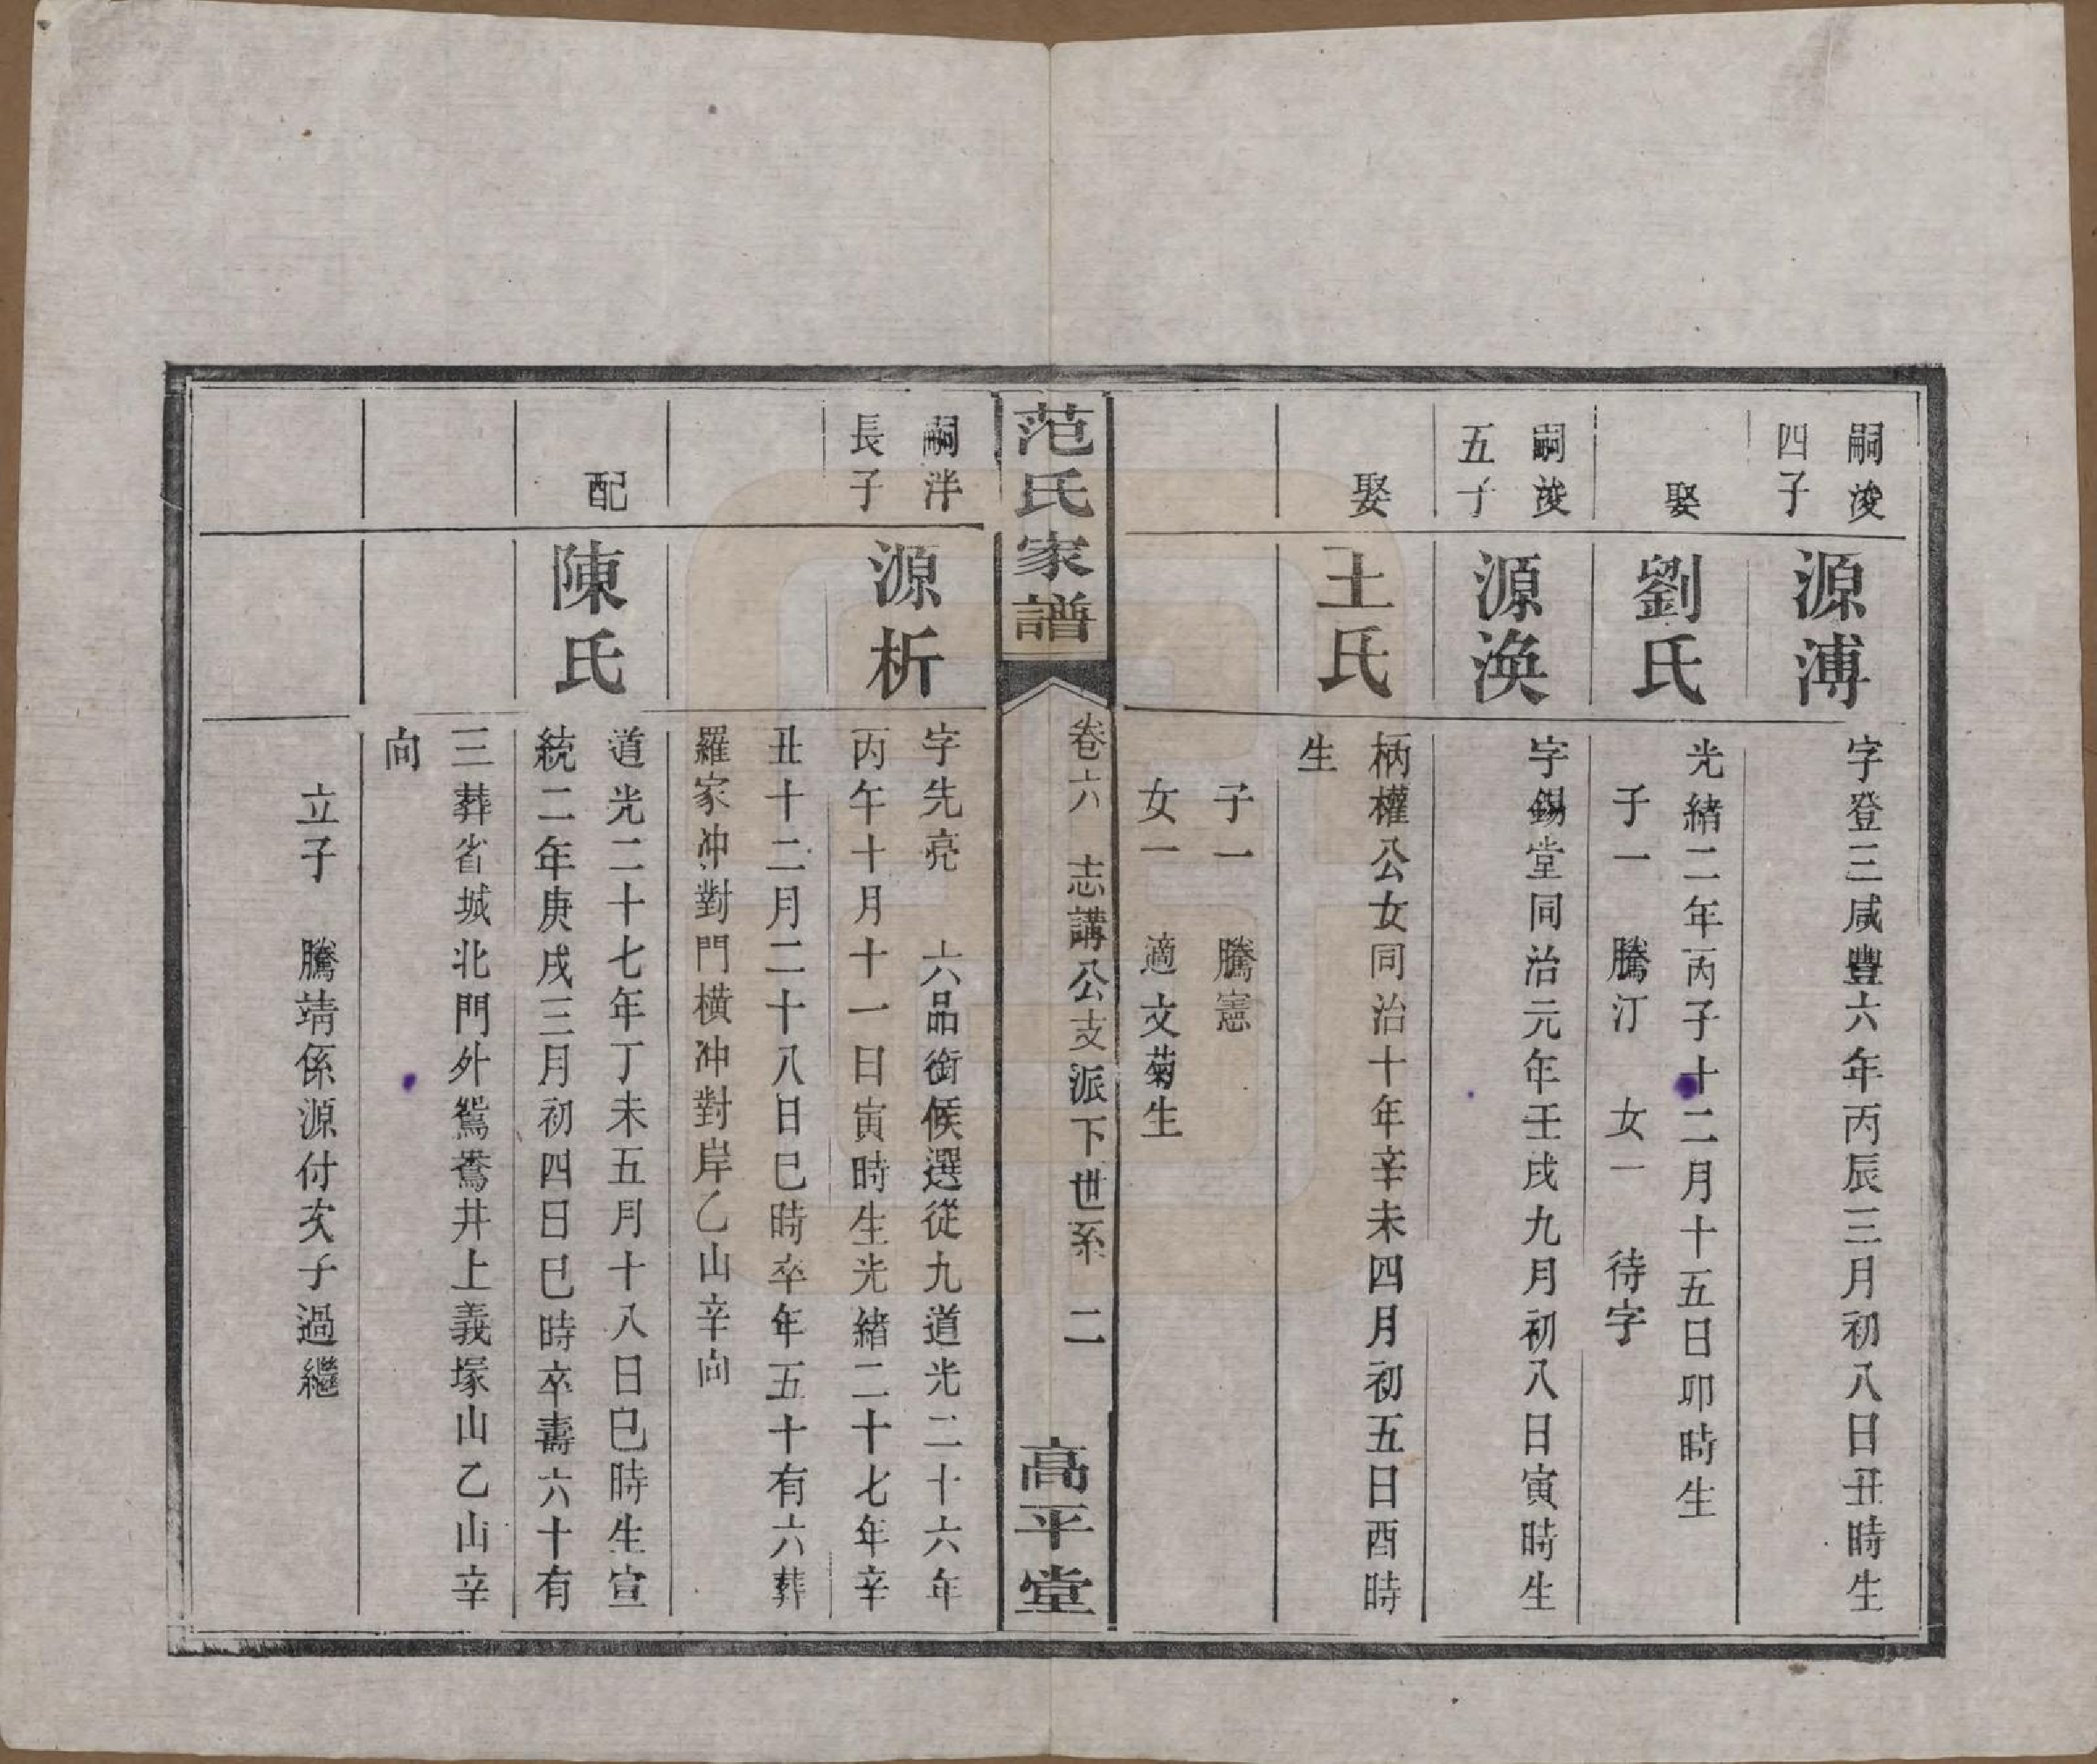 嗣浚
四子
源溥
字登三咸豐六年丙辰三月初八日丑時生
娶
劉氏
光緒二年丙子十二月十五日卯時生
子一　騰汀　女一　待字
嗣浚
五子
源渙
字錫堂同治元年壬戌九月初八日寅時生
娶
王氏
柄權公女同治十年辛未四月初五日酉時
生
子一　騰憲
女一　適文菊生
范氏家譜
卷六　志講公支派下世系　二
高平堂
嗣泮
長子
源析
字先亮　六品銜候選從九道光二十六年
丙午十月十一日寅時生光緒二十七年辛
丑十二月二十八日巳時卒年五十有六葬
羅家冲對門橫冲對岸乙山辛向
配
陳氏
道光二十七年丁未五月十八日巳時生宣
統二年庚戌三月初四日巳時卒壽六十有
三葬省城北門外鴛鴦井上義塚山乙山辛
向
立子　騰靖係源付次子過繼